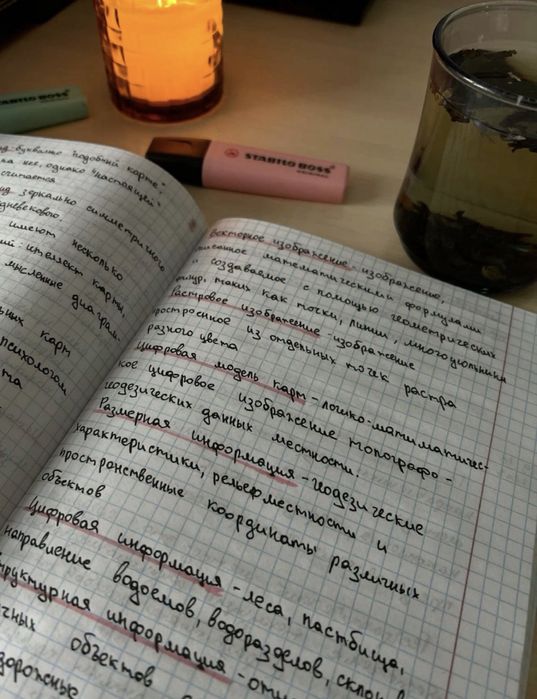 STABILO BOSS
STABILO BOSS
ORIGINAL
буквально "подобный карте"
на нее, однако "настоящей"
считается
зеркально симметричного
средневековою
имеют несколько
интелект карты,
мысленные диаграм-
карт
психологом
Векторное изображение - изображение,
описанное математическими формулами
создаваемое с помощью геометрических
фигур, таких как точки, линии, многоугольники
Растровое изображение - изображение
построенное из отдельных точек растра
разного цвета
Цифровая модель карт - логико-матиматичес-
кое цифровое изображение топографо-
геодезических данных местности.
Размерная информация - геодезические
характеристики, рельеф местности и
пространственные координаты различных
объектов
Цифровая информация - леса, пастбища,
направление водоемов, водоразделов,
структурная информация -
объектов
дорожные